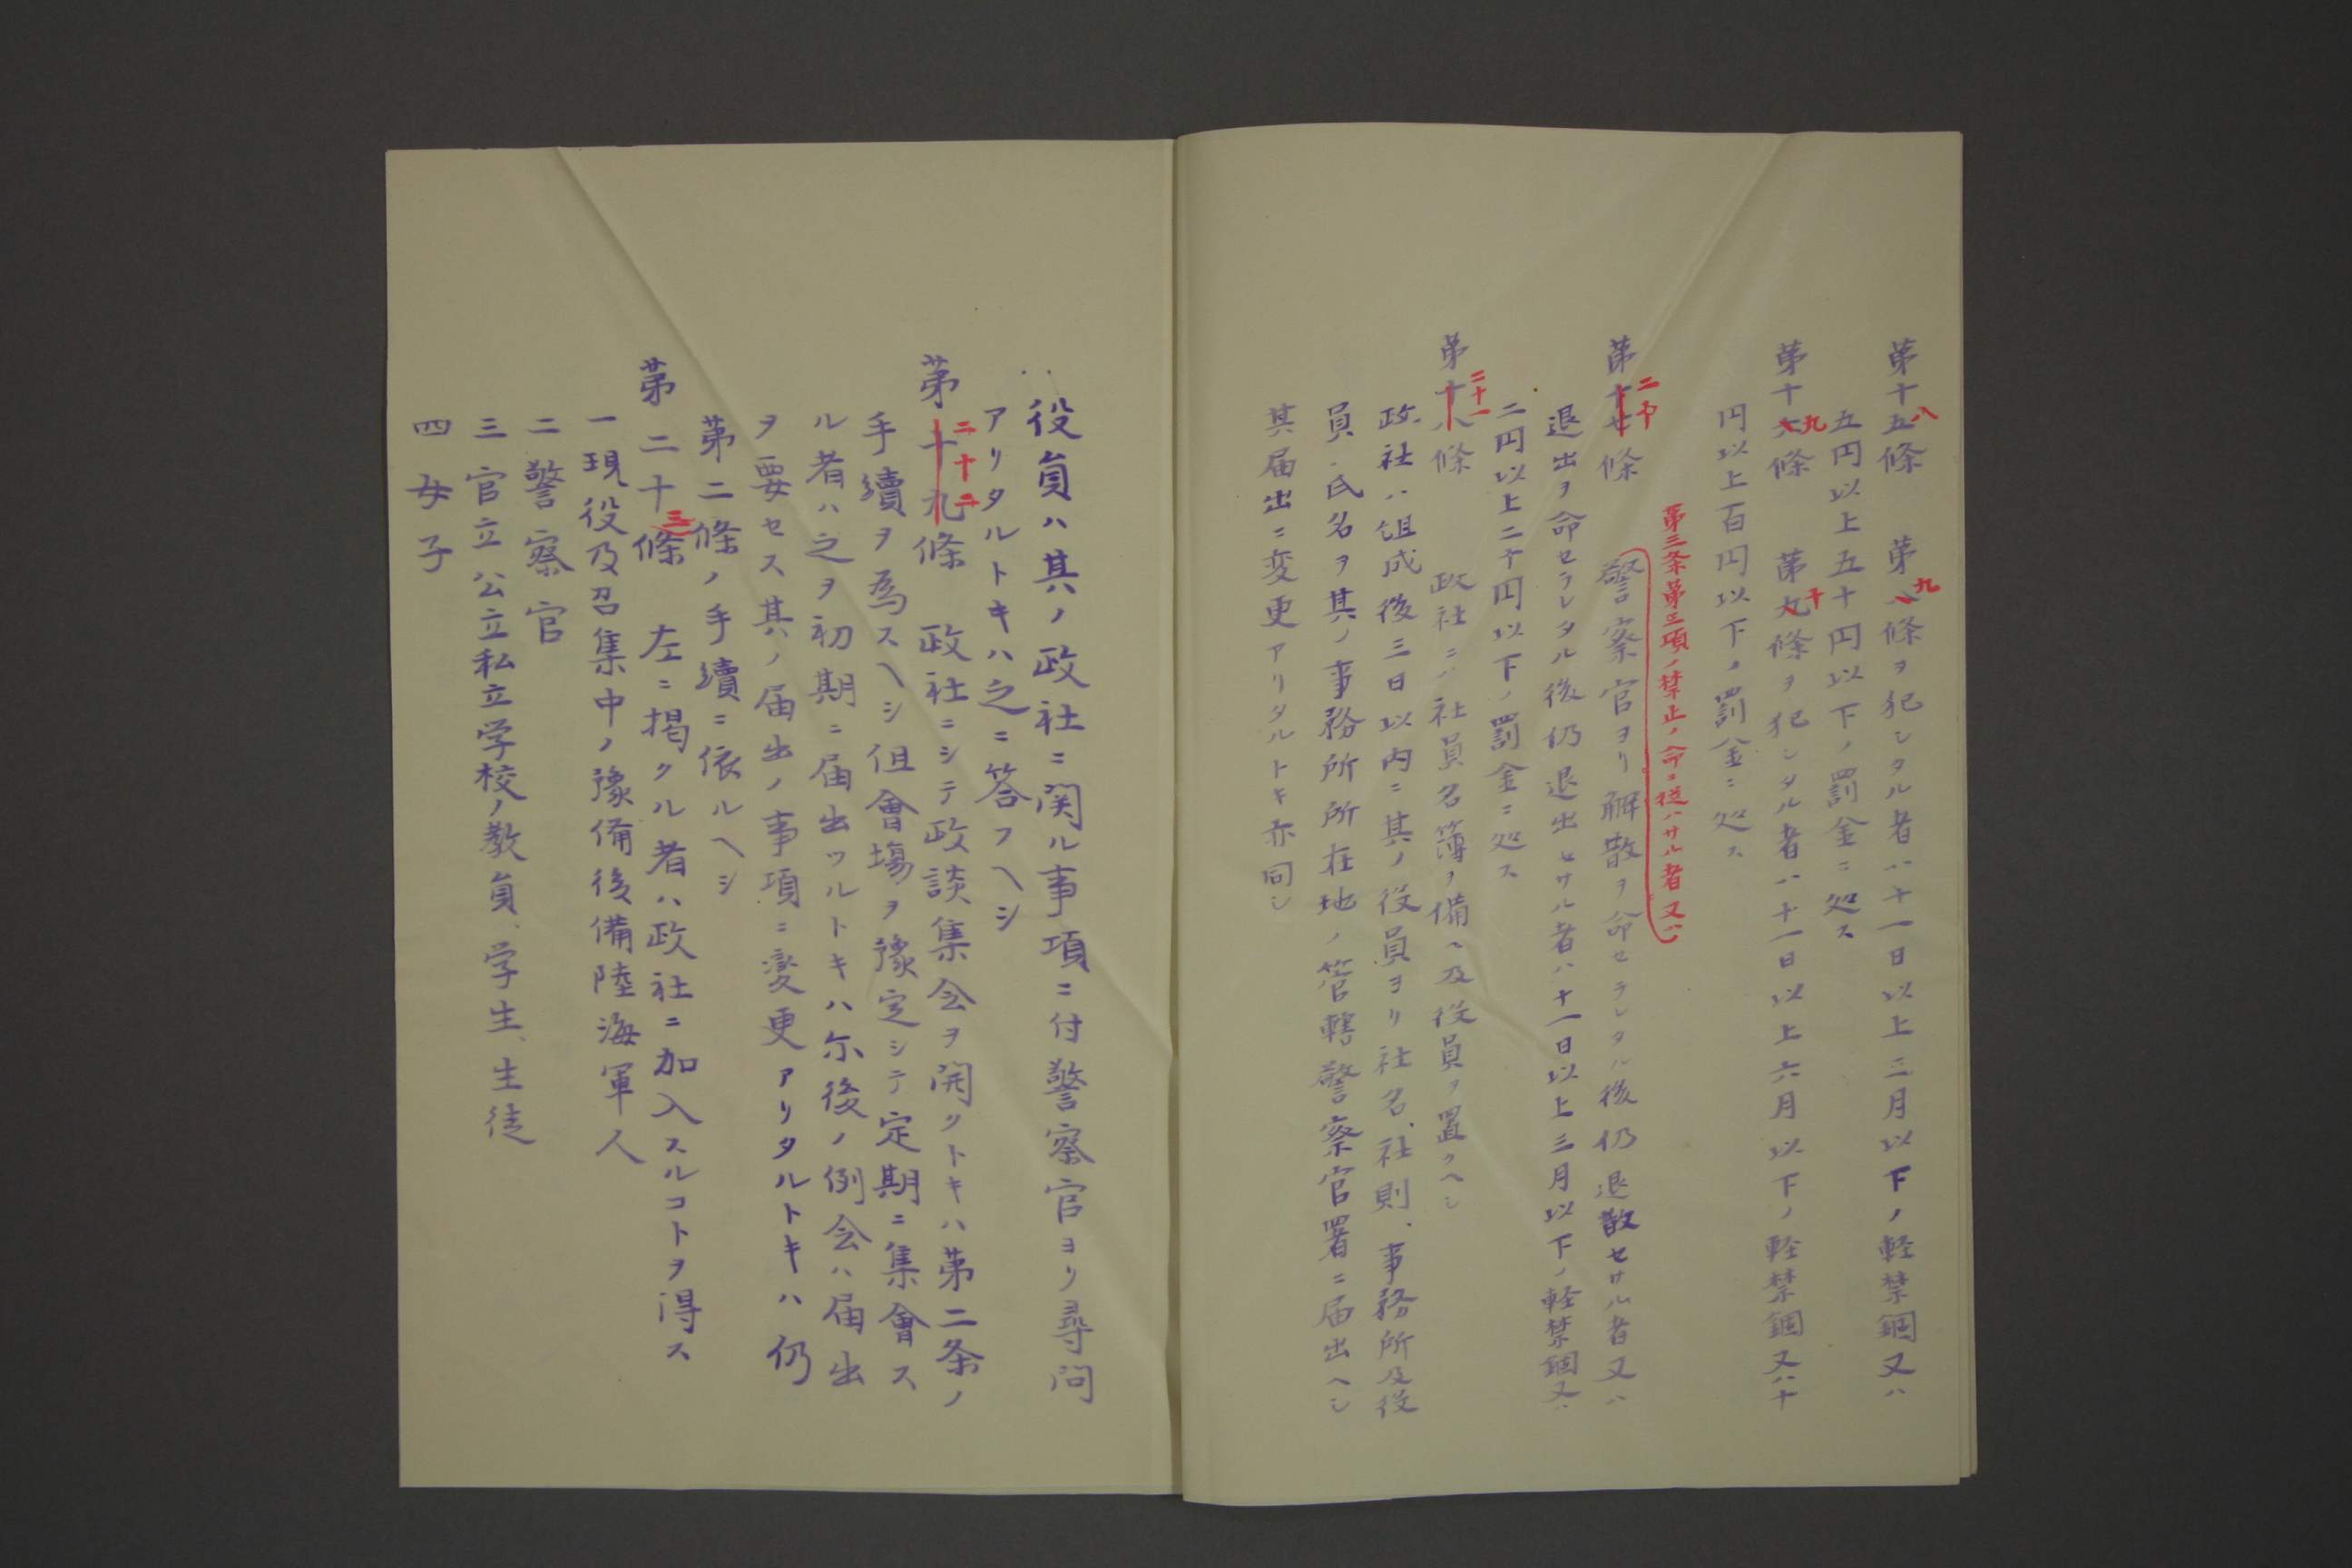 第十五八條　第八九條ヲ犯シタル者ハ十一日以上三月以下ノ軽禁錮又ハ
五円以上五十円以下ノ罰金ニ処ス
第十六九條　第九十條ヲ犯シタル者ハ十一日以上六月以下ノ軽禁錮又ハ十
円以上百円以下ノ罰金ニ処ス
第三条第三項ノ禁止ノ命ニ従ハサル者又ハ
第十七二十條　警察官ヨリ解散ヲ命セラレタル後仍退散セサル者又ハ
退出ヲ命セラレタル後仍退出セサル者ハ十一日以上三月以下ノ軽禁錮又ハ
二円以上二十円以下ノ罰金ニ処ス
第十八二十一條　政社ニハ社員名簿ヲ備ヘ及役員ヲ置クヘシ
政社ハ組成後三日以内ニ其ノ役員ヨリ社名、社則、事務所及役
員氏名ヲ其ノ事務所所在地ノ管轄警察官署ニ届出ヘシ
其届出ニ変更アリタルトキ亦同シ
役員ハ其ノ政社ニ関ル事項ニ付警察官ヨリ尋問
アリタルトキハ之ニ答フヘシ
第十九二十二條　政社ニシテ政談集会ヲ開クトキハ第二条ノ
手續ヲ為スヘシ但會場ヲ豫定シテ定期ニ集會ス
ル者ハ之ヲ初期ニ届出ツルトキハ尓後ノ例会ハ届出
ヲ要セス其ノ届出ノ事項ニ変更アリタルトキハ仍
第二條ノ手續ニ依ルヘシ
第二十三條　左ニ掲クル者ハ政社ニ加入スルコトヲ得ス
一現役及召集中ノ豫備後備陸海軍人
二警察官
三官立公立私立学校ノ教員、学生、生徒
四女子